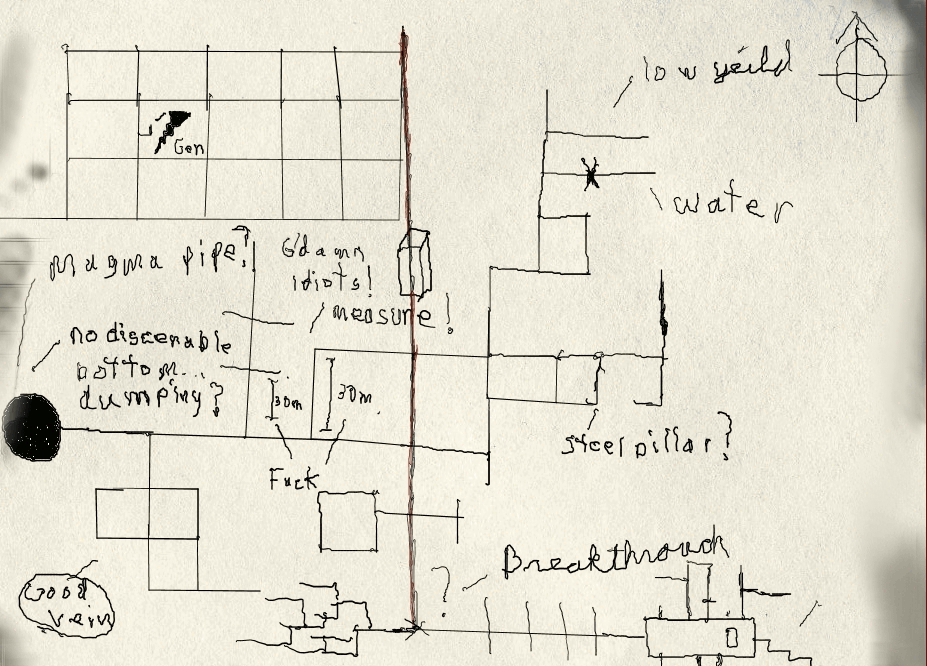 low yeild
Gen
water
Magma pipe?
G'damn
idiots!
measure!
no discenable
bottom...
dumping?
30m
30m.
steel pillar?
Fuck
Breakthrough
?
Good
vein